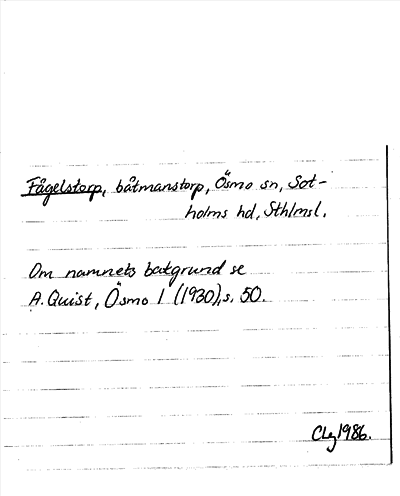 Fågelstorp, båtmanstorp, Ösmo sn, Sot-
holms hd, Sthlmsl.
Om namnets bakgrund se
A. Quist, Ösmo I (1930), s. 50.
CLg 1986.